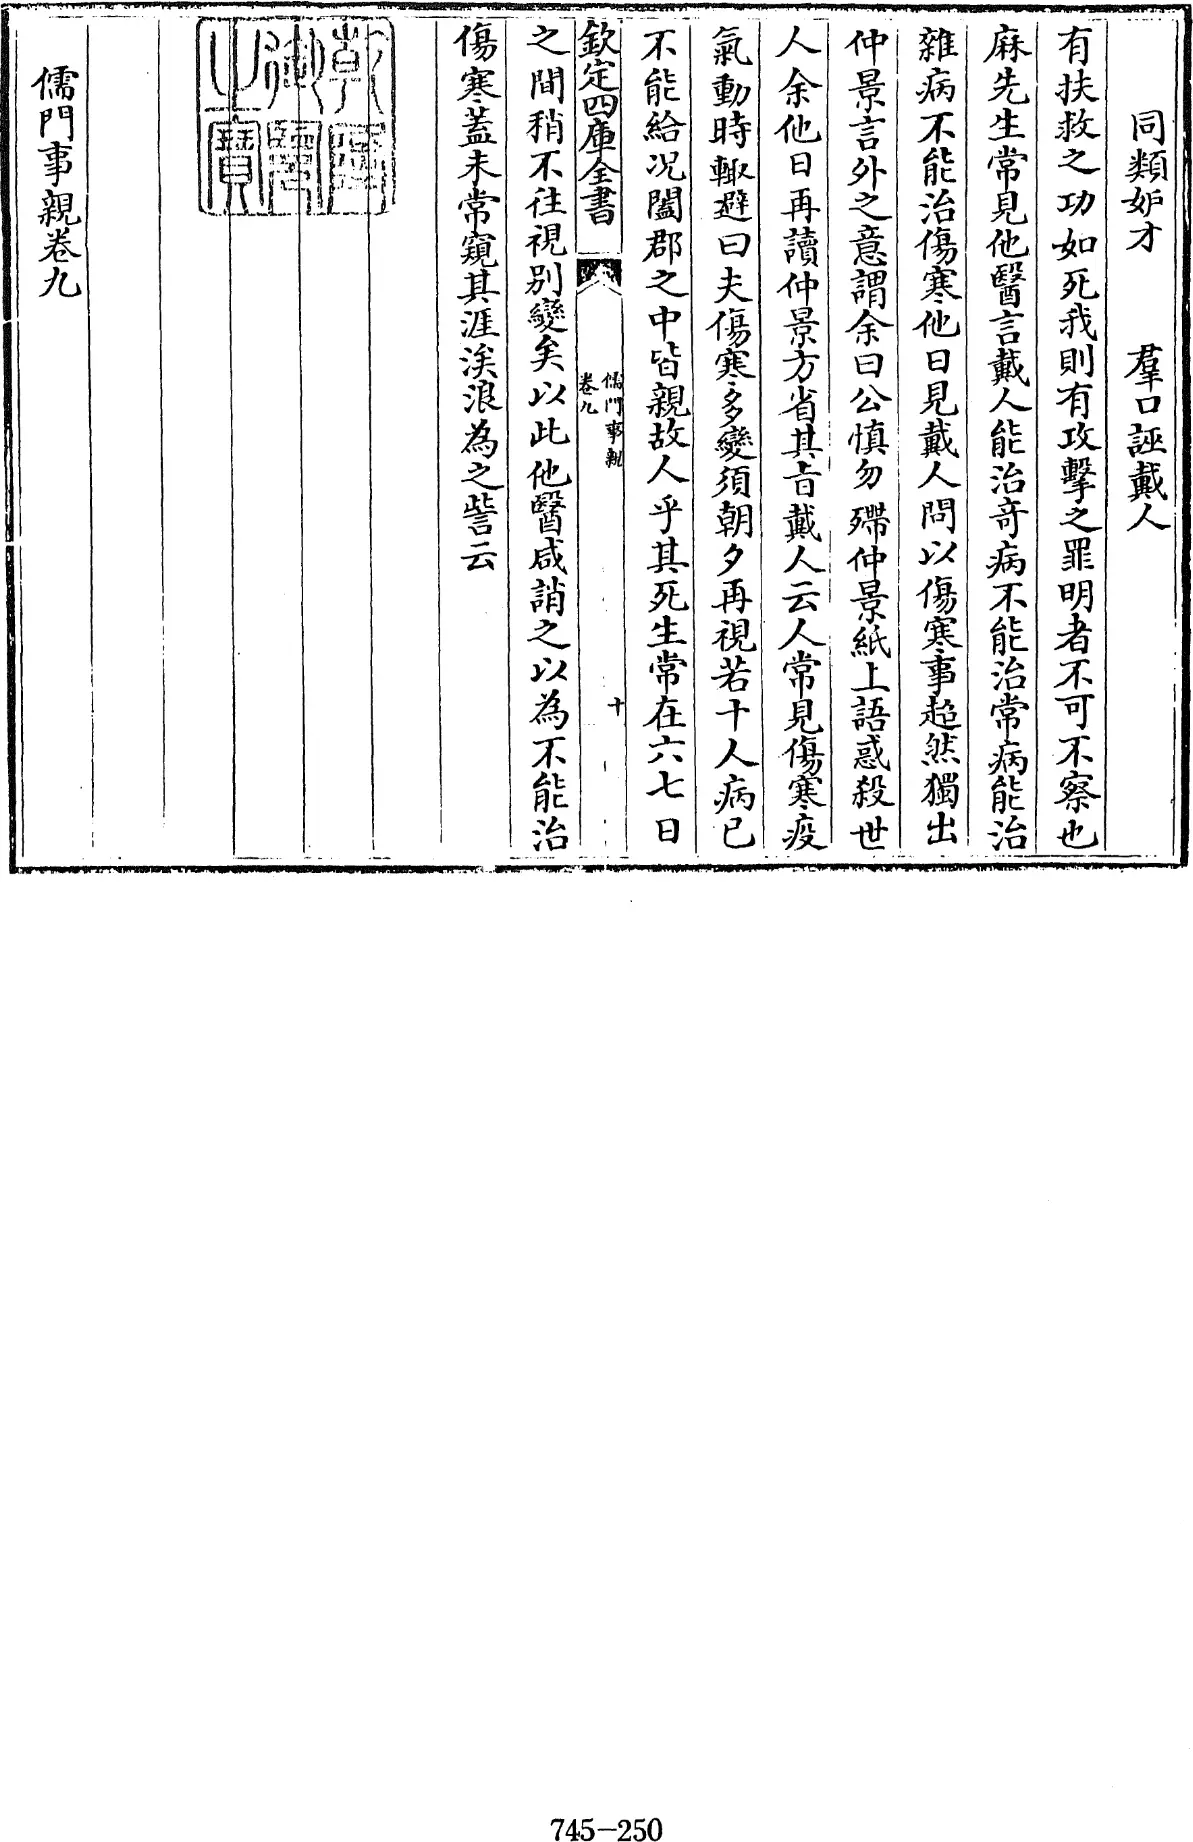 同類妒才　　羣口誣戴人
有扶救之功如死我則有攻擊之罪明者不可不察也
麻先生常見他醫言戴人能治奇病不能治常病能治
雜病不能治傷寒他日見戴人問以傷寒事超然獨出
仲景言外之意謂余曰公慎勿殢仲景紙上語惑殺世
人余他日再讀仲景方省其旨戴人云人常見傷寒疫
氣動時輙避曰夫傷寒多變須朝夕再視若十人病已
不能給况闔郡之中皆親故人乎其死生常在六七日
欽定四庫全書
儒門事親
卷九
十
之間稍不往視别變矣以此他醫咸誚之以為不能治
傷寒蓋未常窺其涯涘浪為之訾云
乾隆
御覽
之寶
儒門事親卷九
745-250